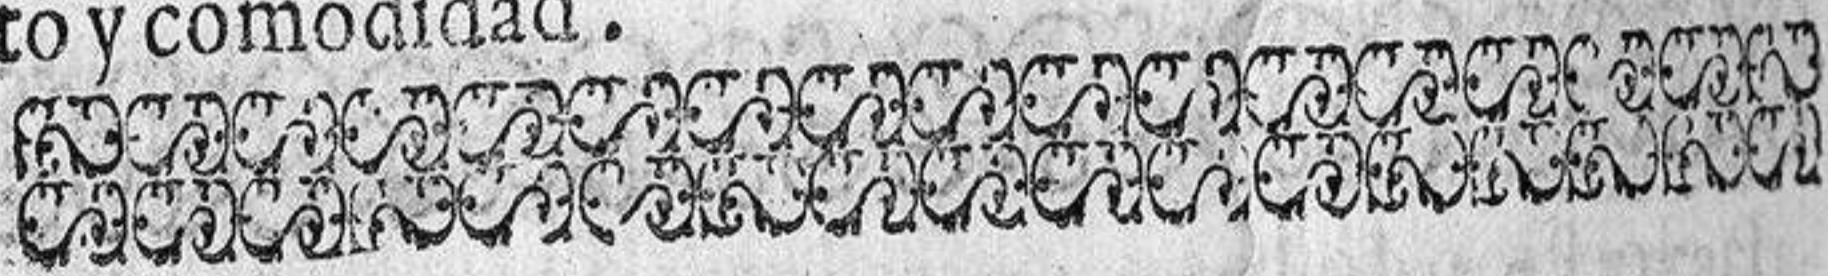 to y comodidad.